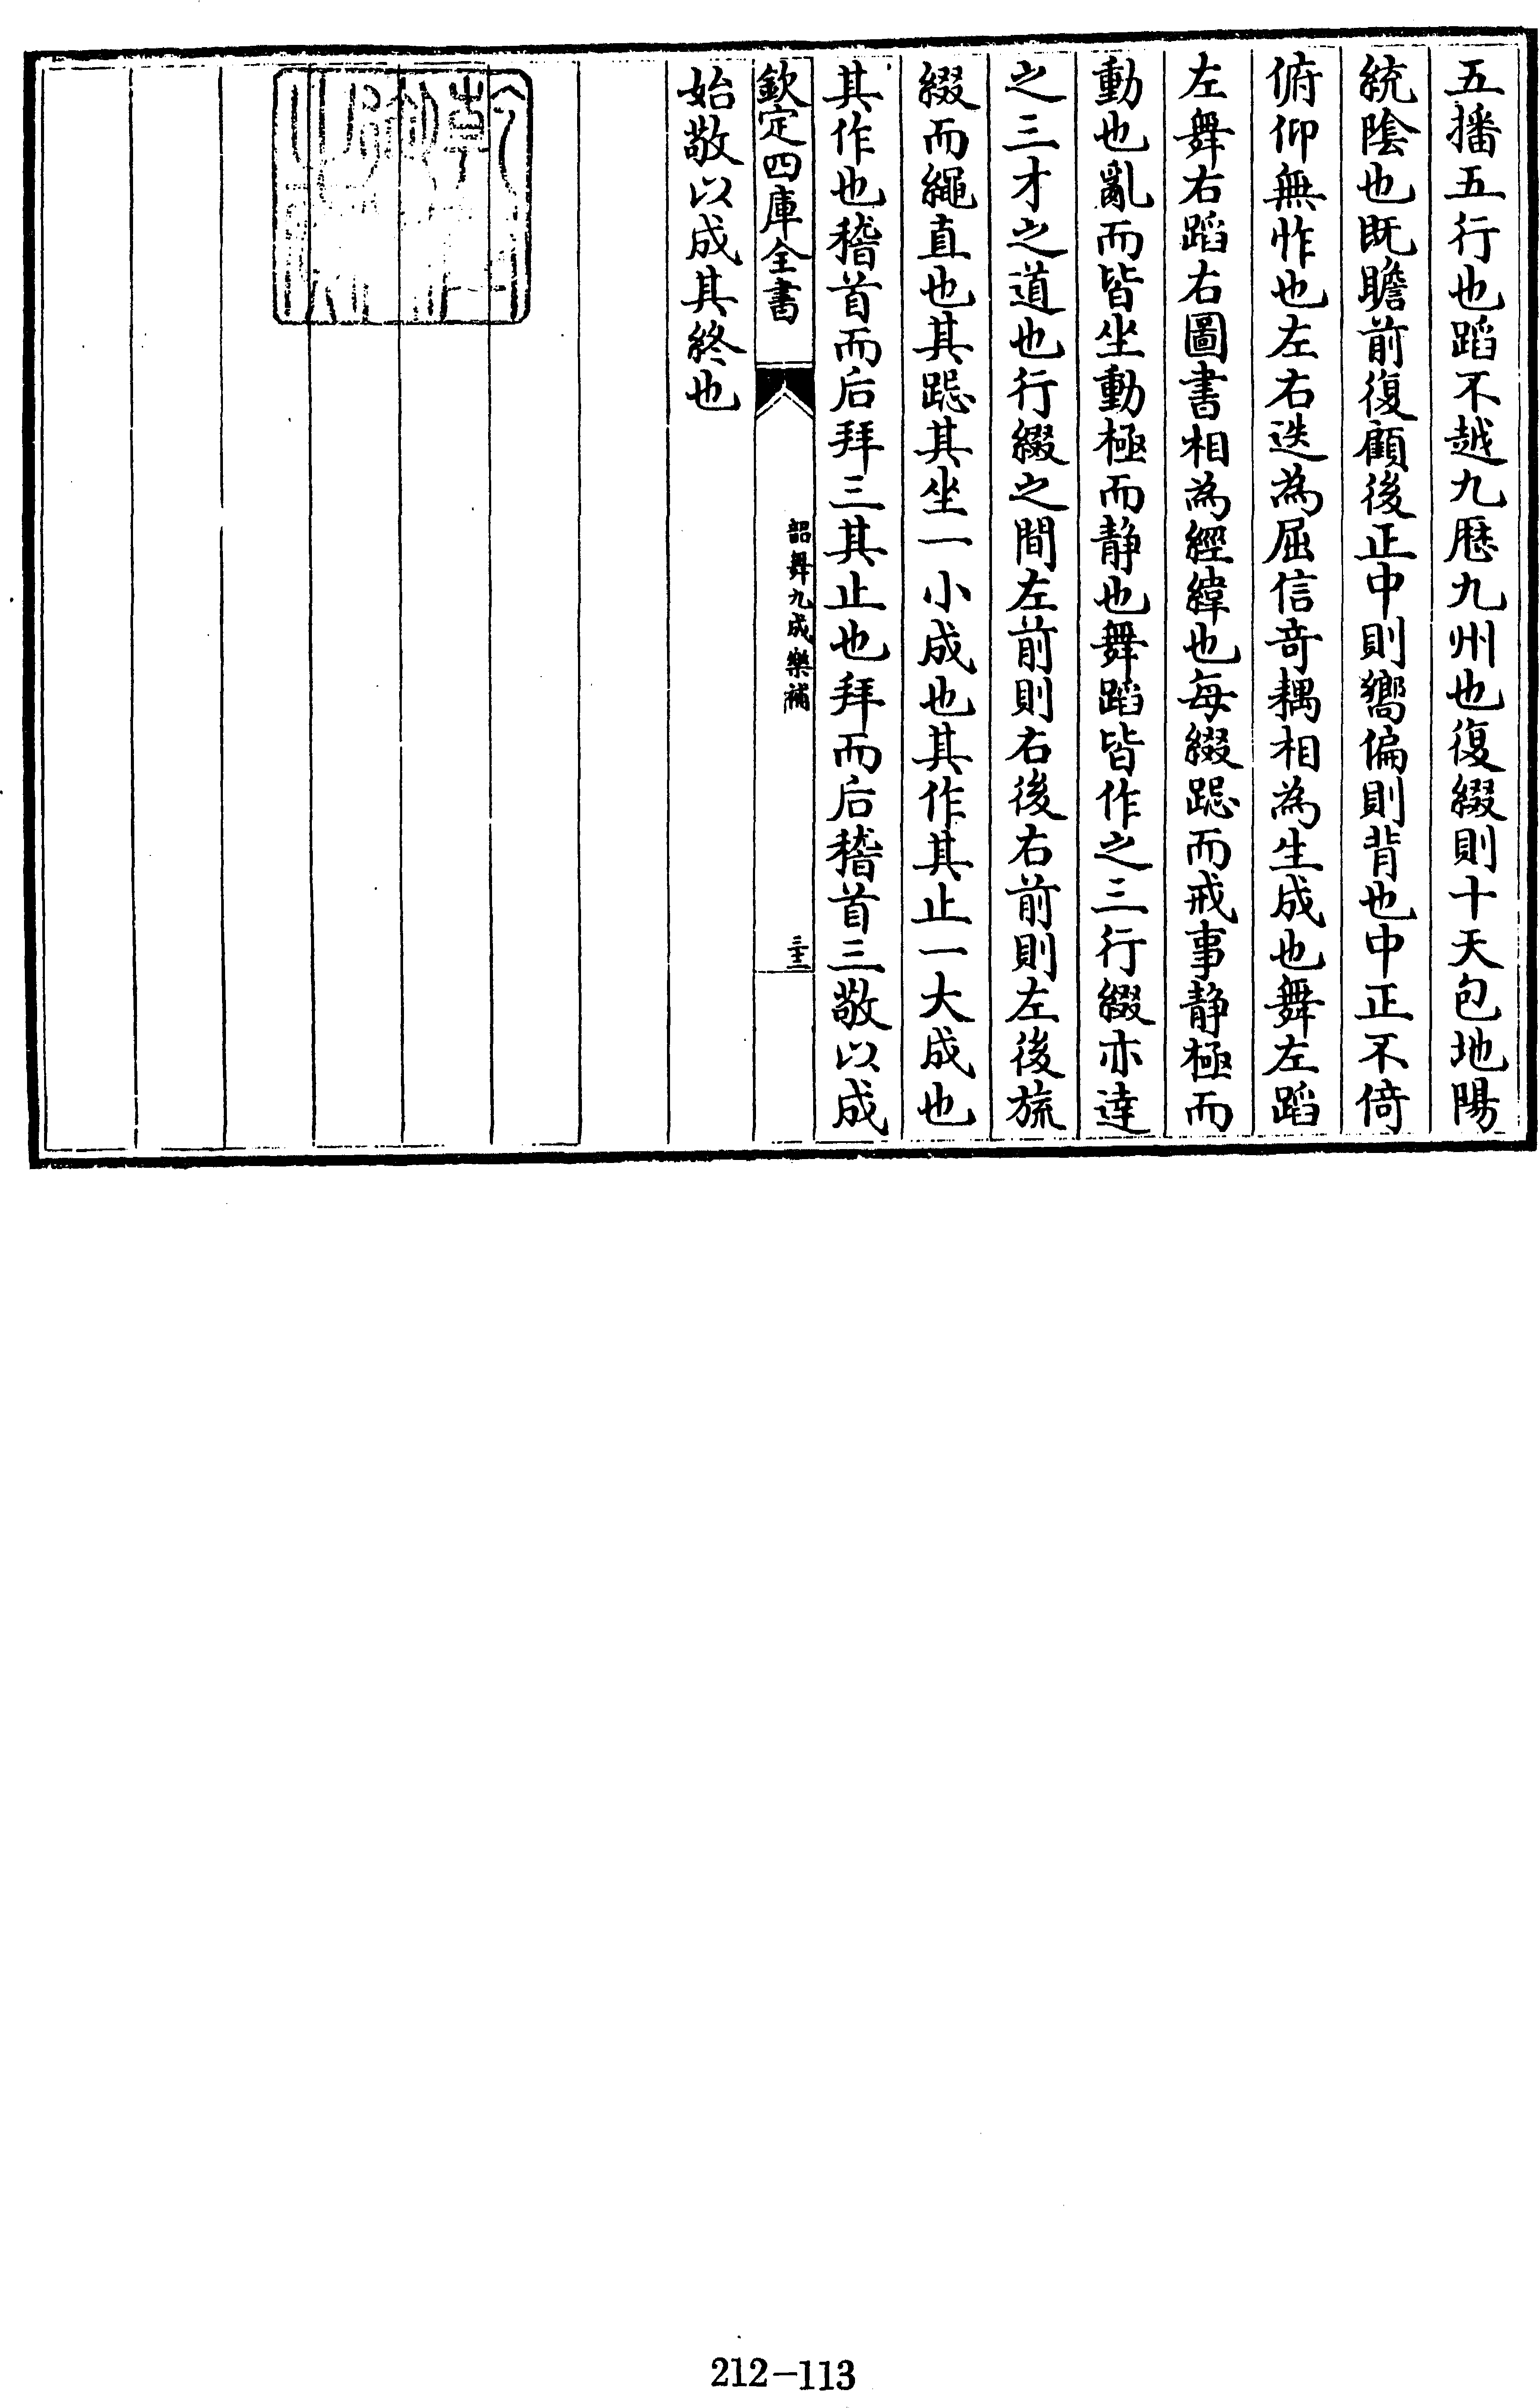 五播五行也蹈不越九歴九州也復綴則十天包地陽
統陰也既瞻前復顧後正中則嚮偏則背也中正不倚
俯仰無怍也左右迭為屈信竒耦相為生成也舞左蹈
左舞右蹈右圖書相為經緯也每綴跽而戒事静極而
動也亂而皆坐動極而静也舞蹈皆作之三行綴亦達
之三才之道也行綴之間左前則右後右前則左後旒
綴而繩直也其跽其坐一小成也其作其止一大成也
其作也稽首而后拜三其止也拜而后稽首三敬以成
欽定四庫全書
韶舞九成樂補
始敬以成其終也
212-113